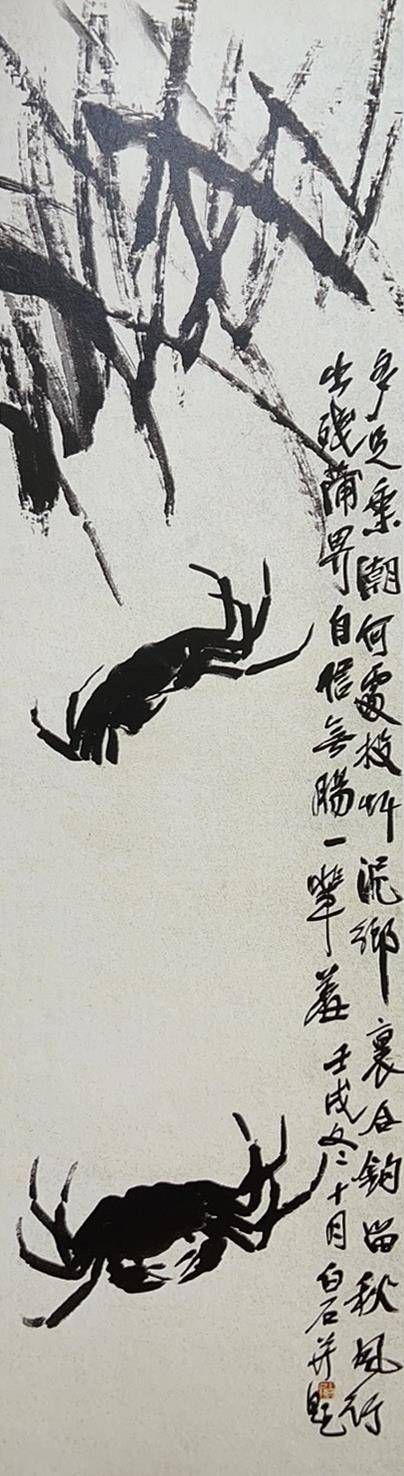 多足乘潮何處投艸泥鄉裏合鉤留秋風行
出殘蒲界自信無腸一輩羞 壬戌冬十月 白石并題